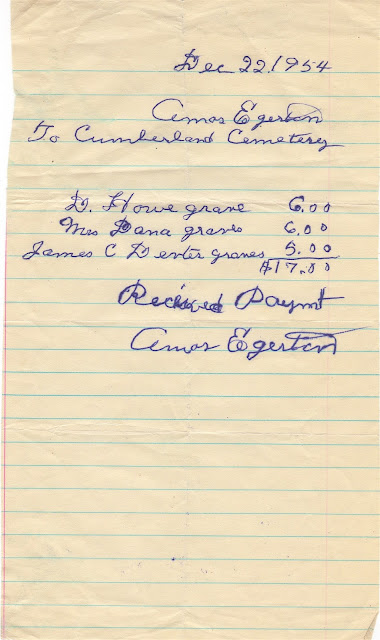 Dec 22. 1954
Amos Egerton
To Cumberland Cemetery
D. Howe grave 6.00
Mrs Dana graves 6.00
James C Denter graves 5.00
$17.00
Received Paymt
Amos Egerton